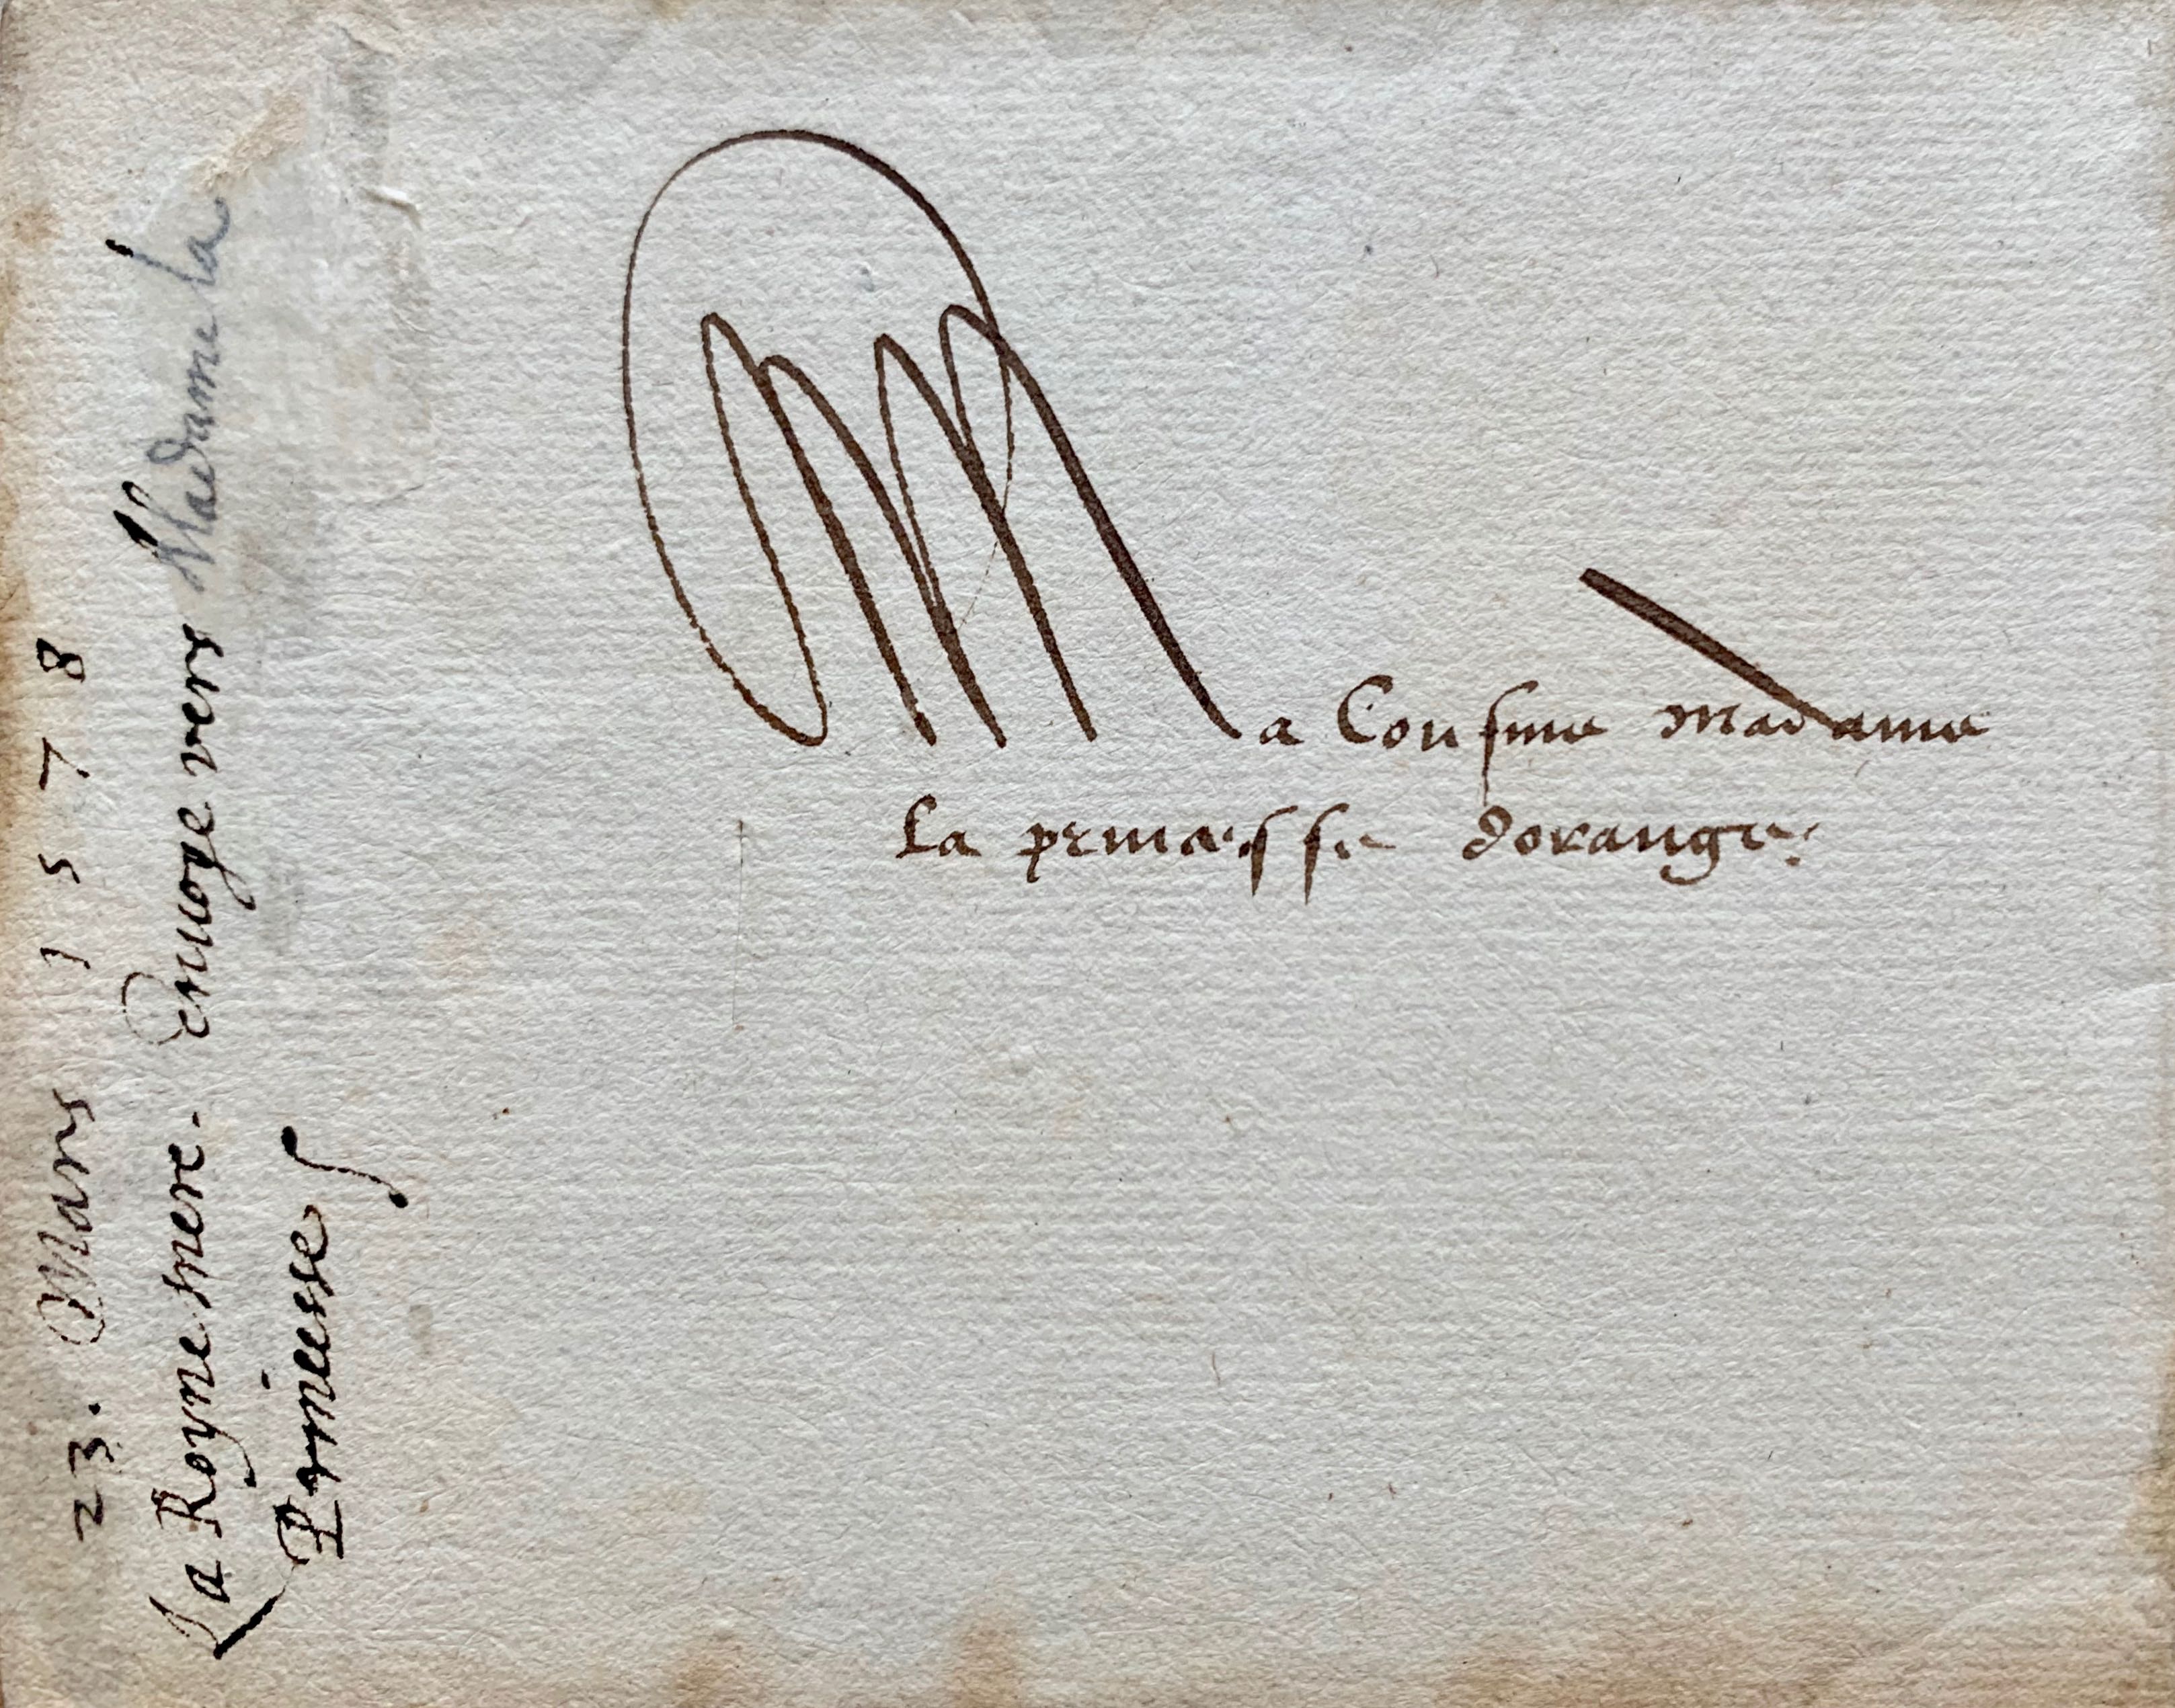 Ma Cousine madame
la princesse dorange.
23. Mars 1578
La Royne mere. enuoye vers Madame la
Princesse